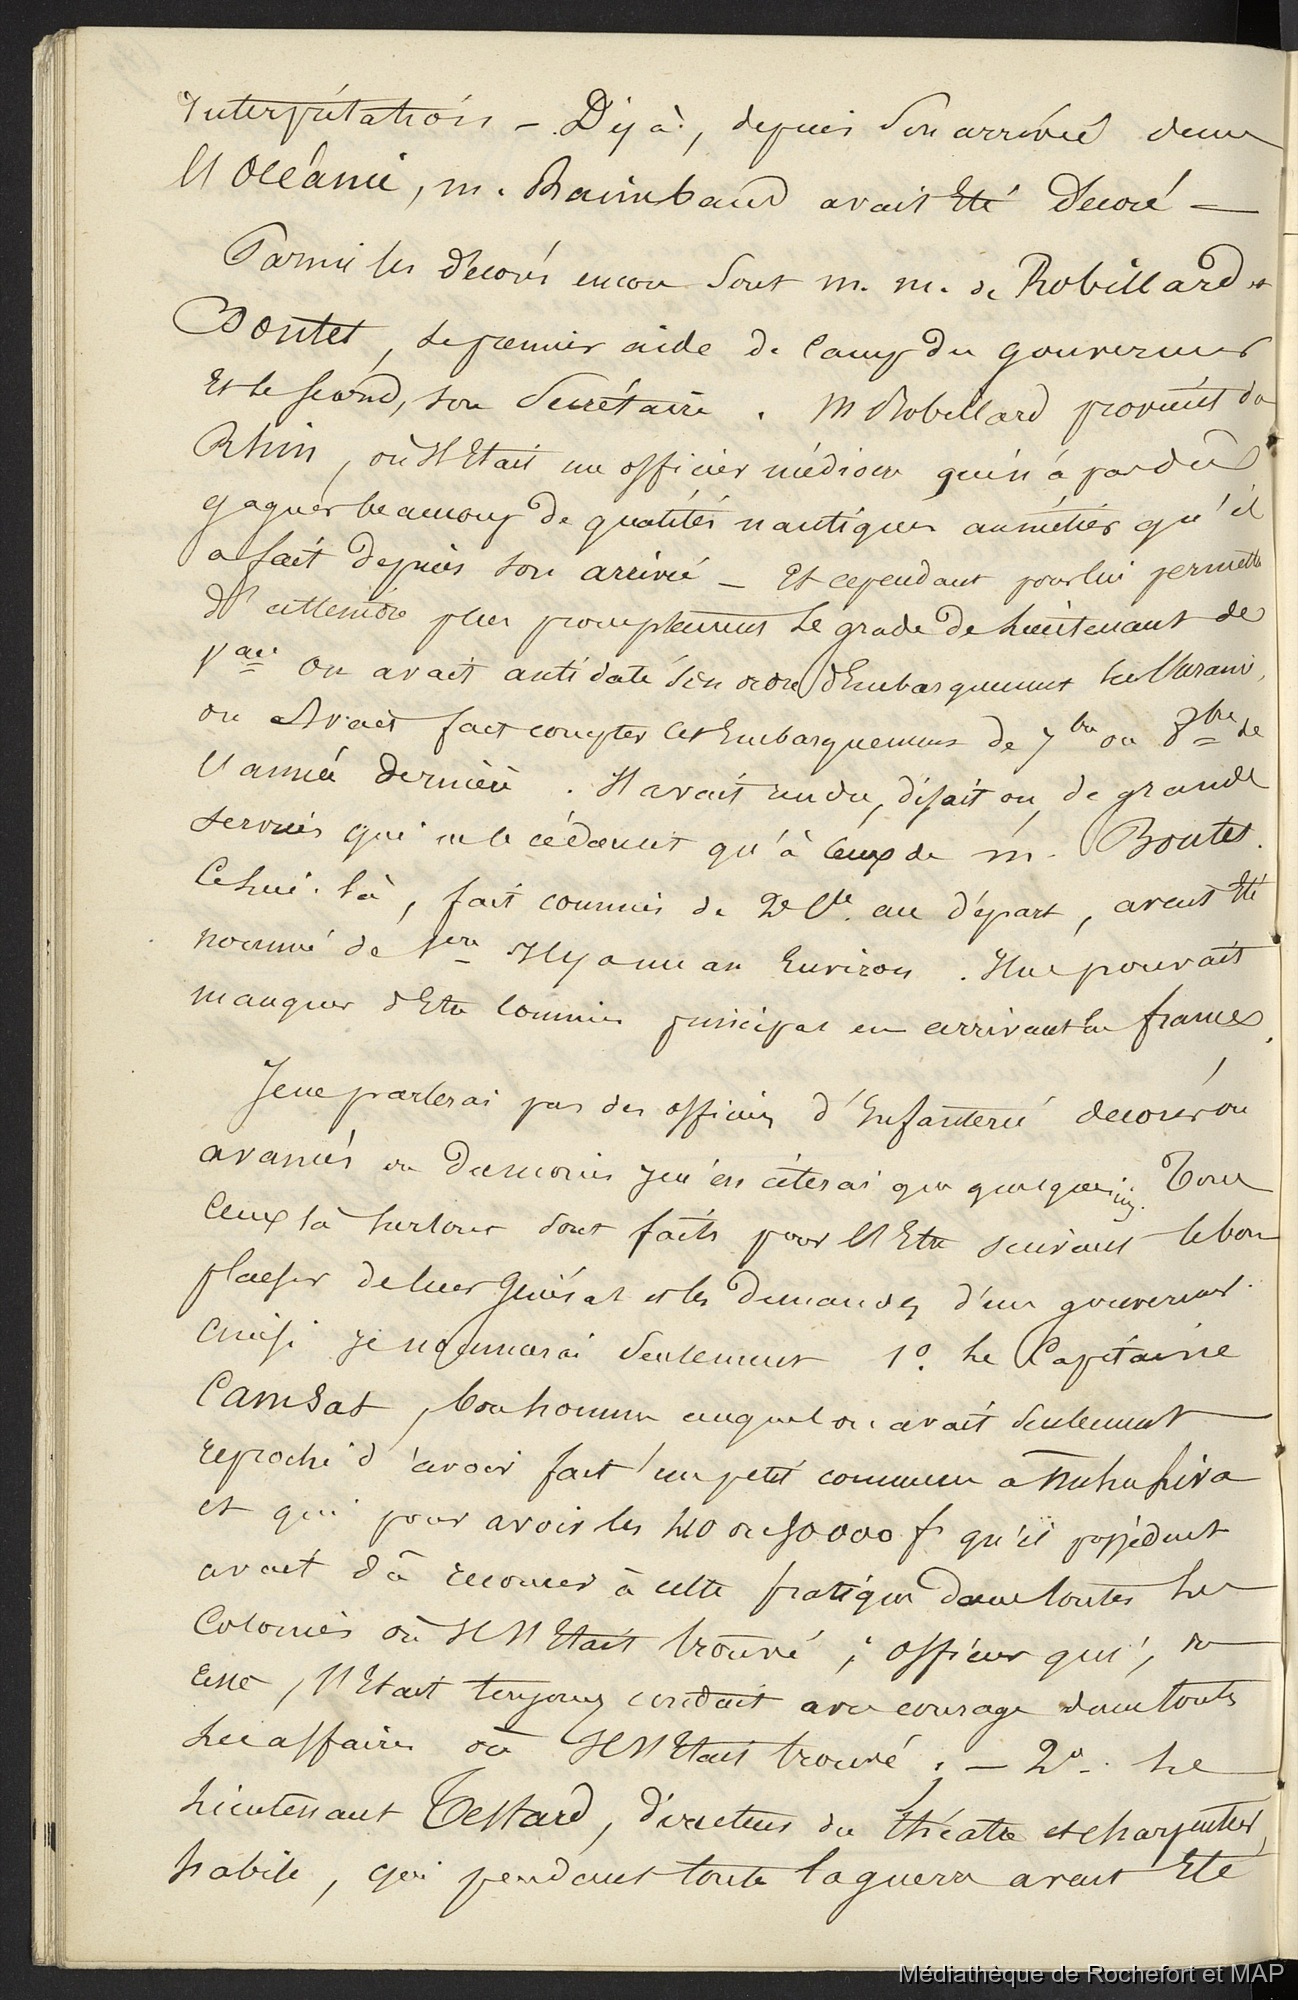 interprétation – Déjà, depuis son arrivée dans
l'Océanie, m. Raimbaud avait été décoré –
Parmi les décorés encore sont m. m. de Robillard et
Boutet, le premier aide de camp du gouverneur
et le second, son secrétaire. M Robillard provient du
Rhin, où il était un officier médiocre qui n'a pas dû
gagner beaucoup de qualités nautiques au métier qu'il
a fait depuis son arrivée – Et cependant pour lui permettre
d'atteindre plus promptement le grade de lieutenant de
on avait antidaté son ordre d'embarquement sur l'Uranie,
on avait fait compter cet embarquement de 7bre ou 8bre de
l'année dernière. Il avait rendu, disait on, de grands
services qui ne le cédaient qu'à ceux de m. Boutet.
Celui-là, fait commis de 2e Cle. au départ, avait été
nommé de 1ère il y a un an environ. Il ne pouvait
manquer d'être commis principal en arrivant en france.
Je ne parlerai pas des officiers d'infanterie décorés ou
avancés ou du moins je n'en citerai que quelques uns. Tous
ceux là surtout sont faits pour l'être suivant le bon
plaisir de leur général et les demandes d'un gouverneur.
ainsi je nommerai seulement 1o. le Capitaine
Camsat, bon homme auquel on avait seulement
reproché d'avoir fait un petit commerce a Nuhuhiva
et qui pour avoir les 40 ou 50000 f qu'il possédait
avait dû recourir à cette pratique dans toutes les
Colonies où il s'était trouvé; officier qui, du
reste, s'était toujours conduit avec courage dans toutes
les affaires où il s'était trouvé; – 2o. le
lieutenant Testard, directeur du théatre et charpentier
habile, qui pendant toute la guerre avait été
Médiathèque de Rochefort et MAP